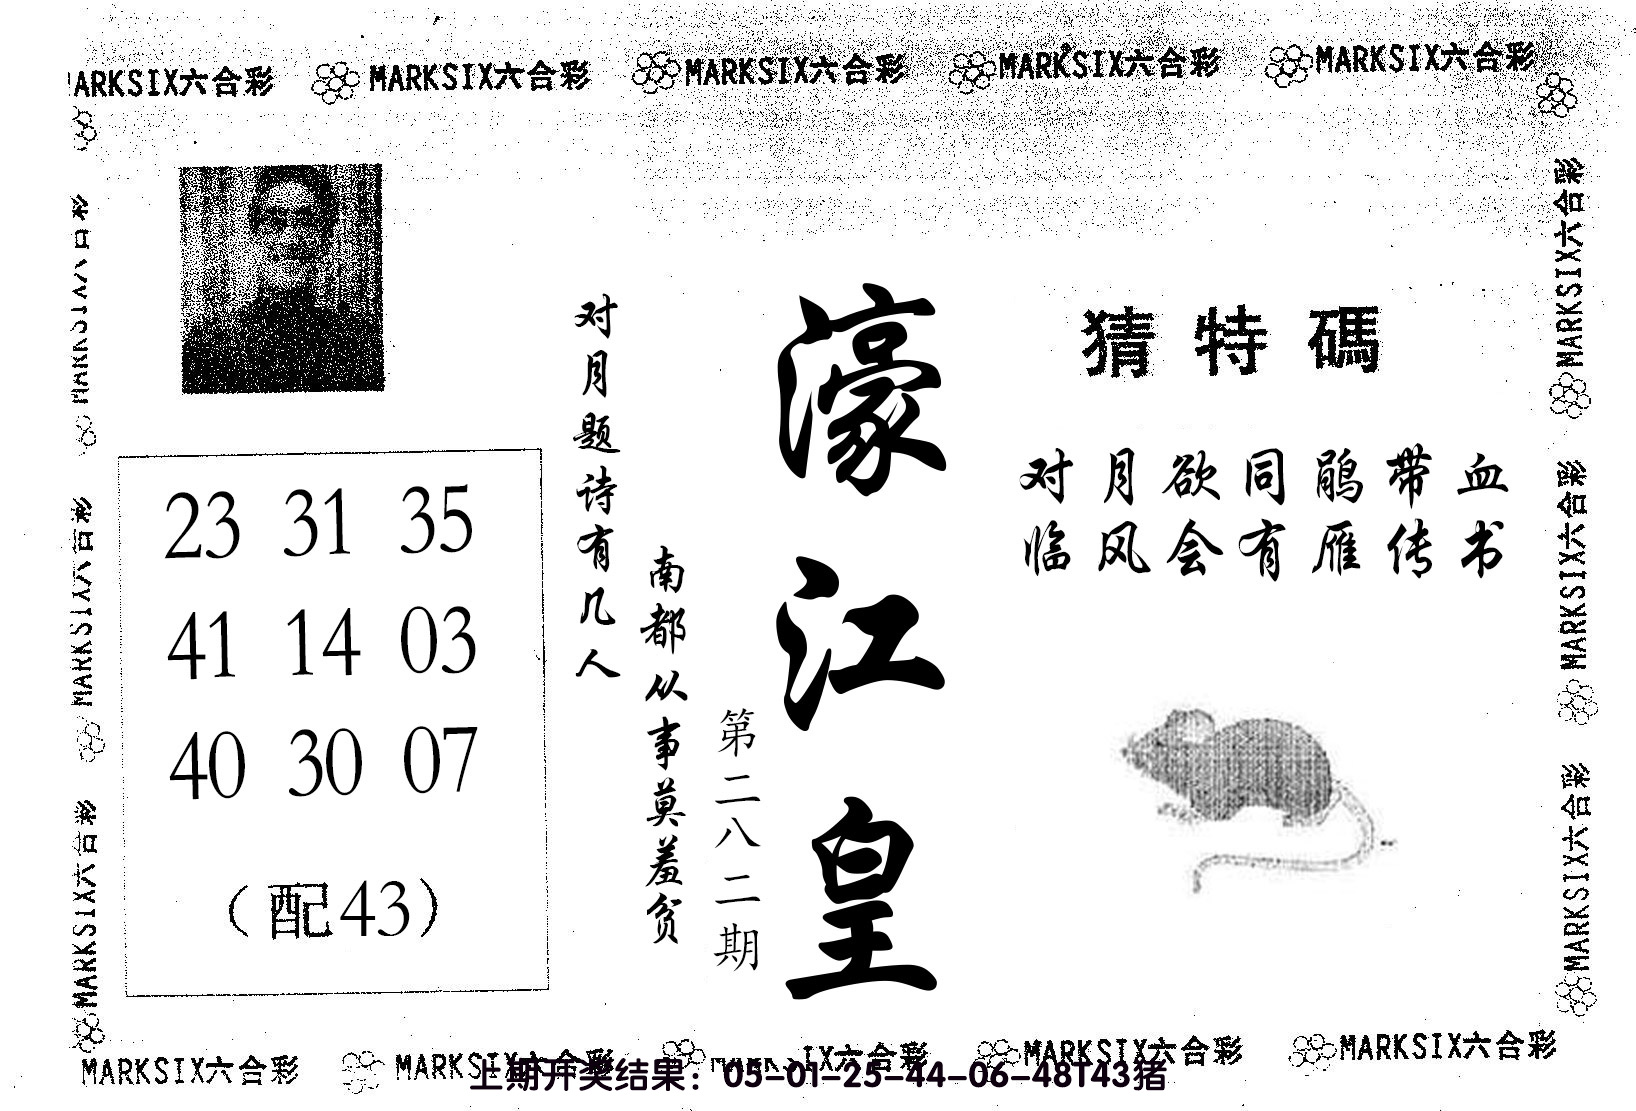 MARKSIX六合彩 MARKSIX六合彩 MARKSIX六合彩 MARKSIX六合彩 MARKSIX六合彩
濠江皇
第二八二期
猜特碼
对月欲同鹃带血
临风会有雁传书
南都从事莫羞贫
对月题诗有几人
23 31 35
41 14 03
40 30 07
（配43）
MARKSIX六合彩
MARKSIX六合彩
MARKSIX六合彩
MARKSIX六合彩
MARKSIX六合彩
MARKSIX六合彩
MARKSIX六合彩 MARKSIX六合彩 MARKSIX六合彩 MARKSIX六合彩 MARKSIX六合彩
上期开奖结果：05-01-25-44-06-48T43猪